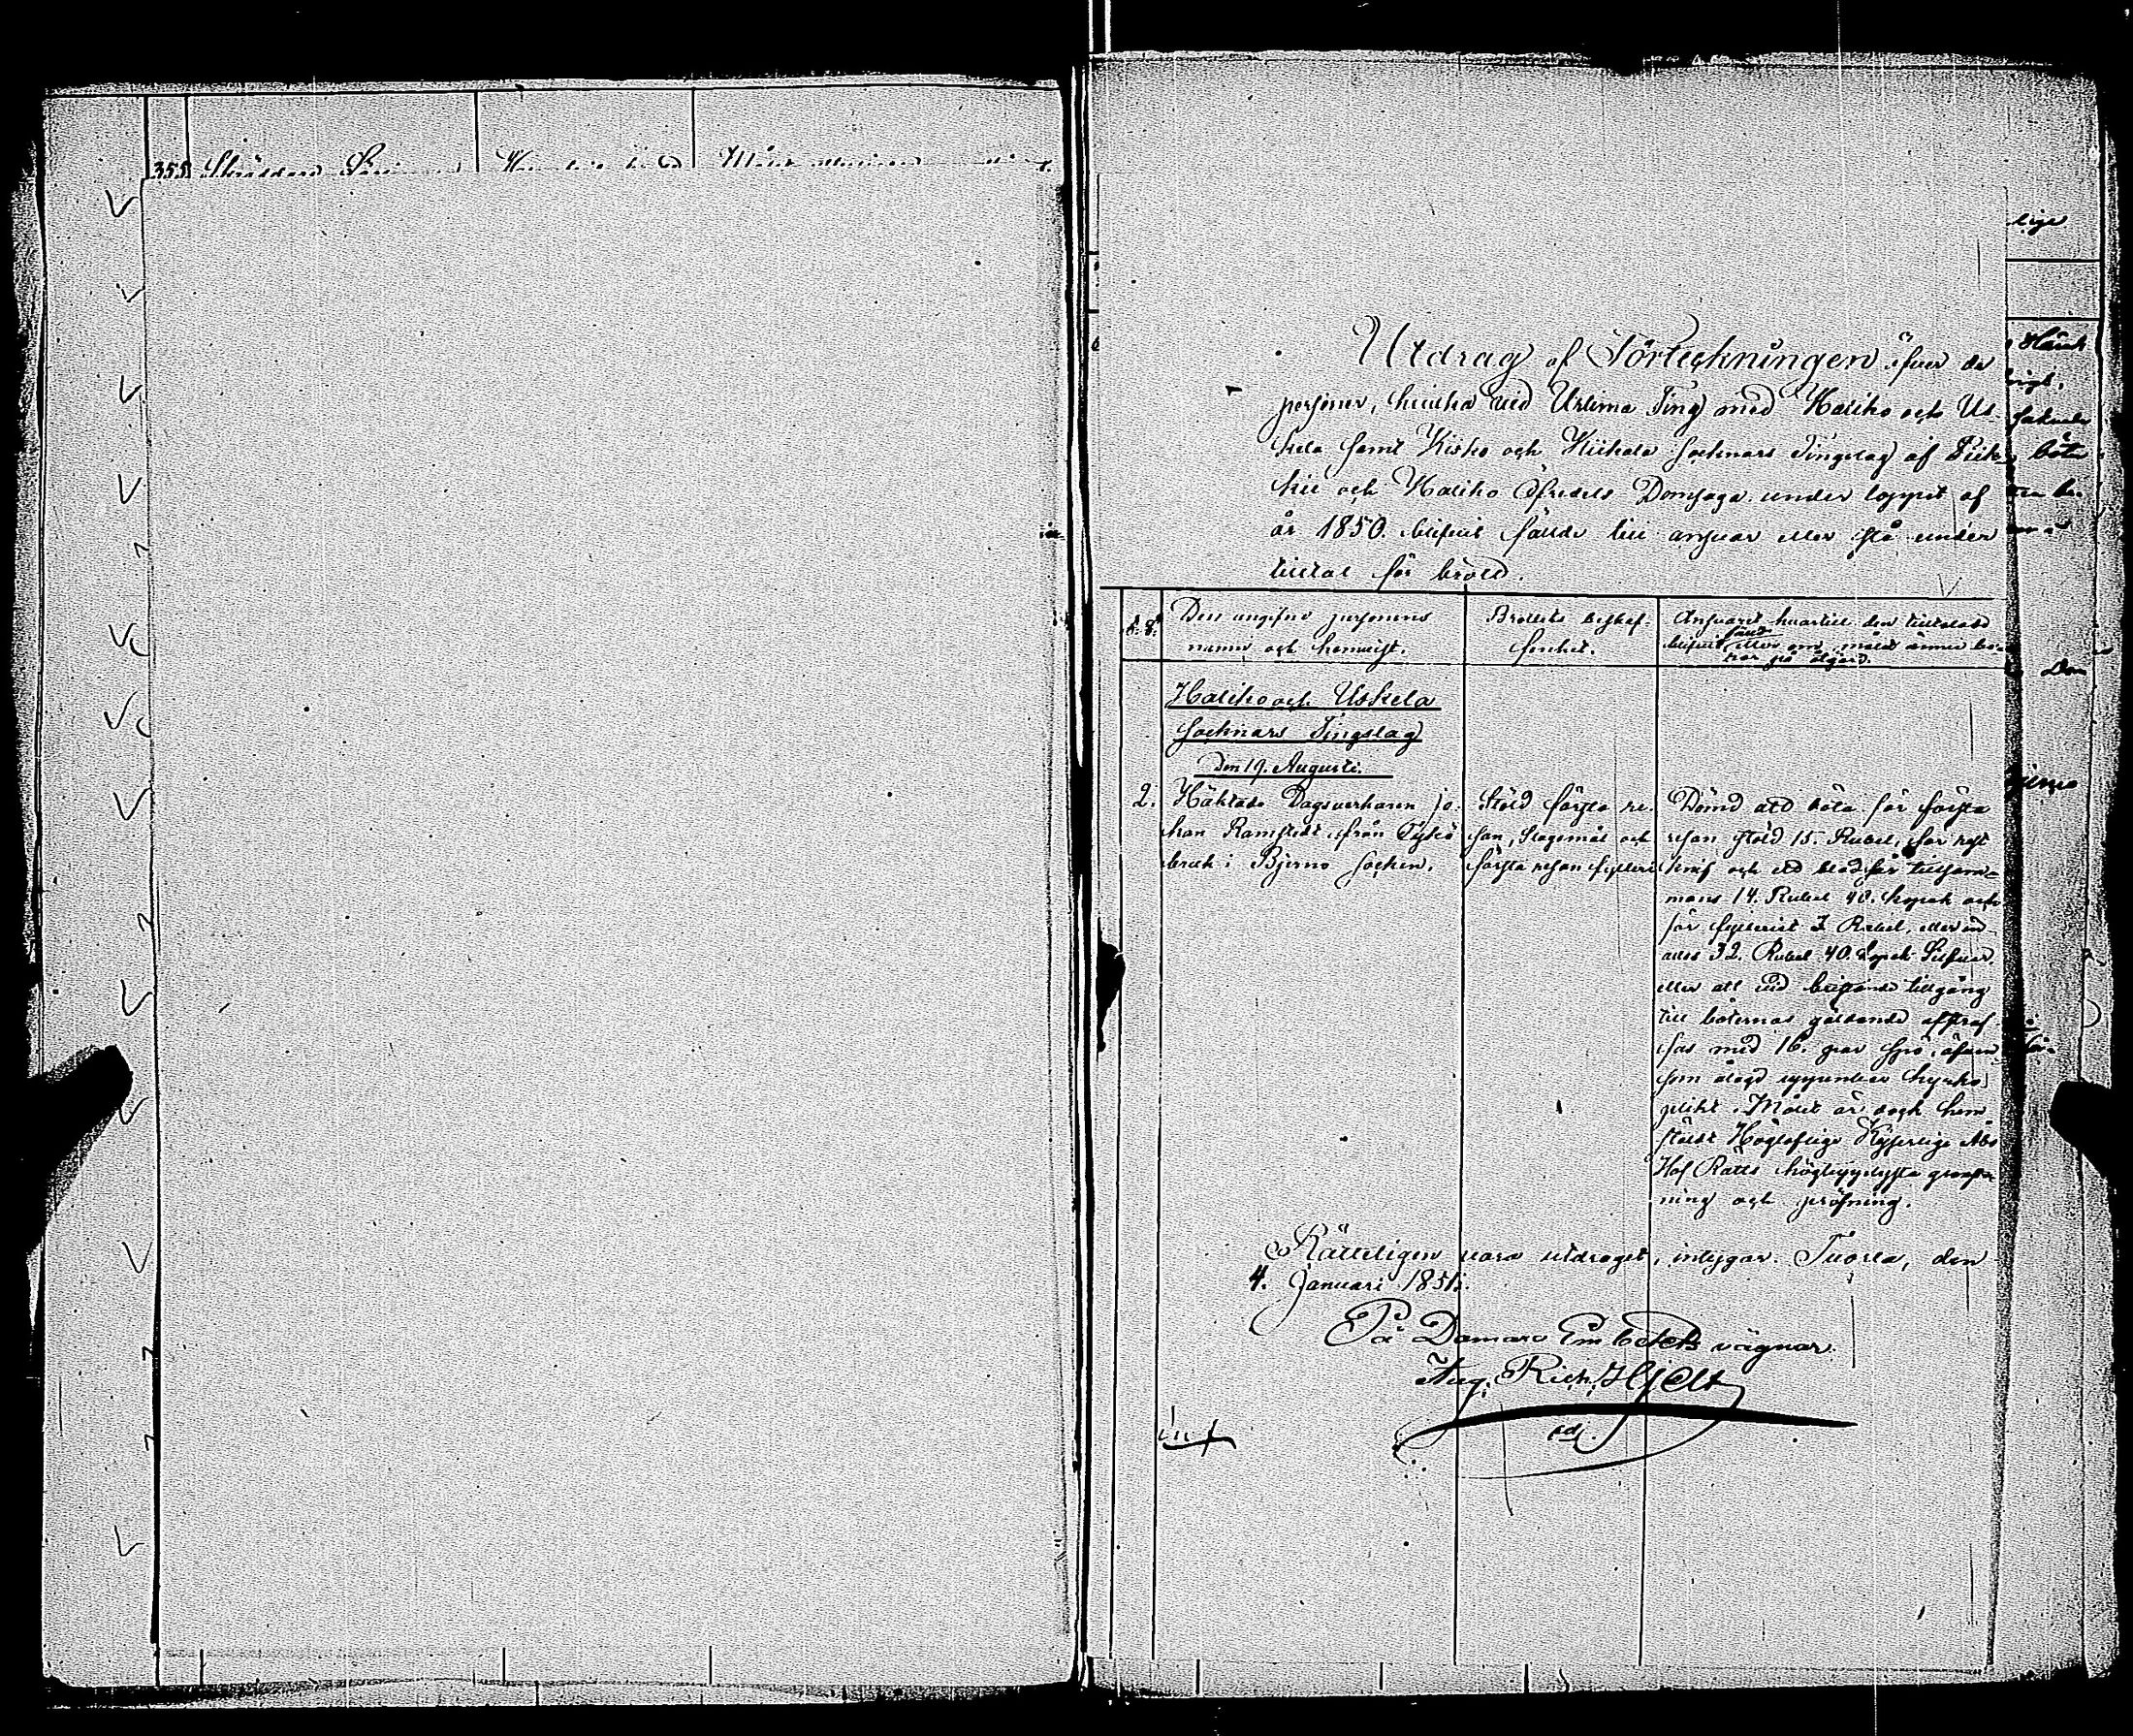 355
Utdrag af Förteckningen öfver de
personer, hvilka vid Urtima Ting med Haliko och Us-
kela samt Kisko och Kiikala Socknars Tingslag af Piik-
kie och Haliko Öfredels Domsaga under loppet af
år 1850. blifvit fällde till ansvar eller stå under
tilltal för brott.
Den angifne personens
namn och hemvist.
Brottets beskaf-
fenhet.
Ansvaret hvartill den tilltalade
blifvit fälld eller om målet ännu be-
ror på åtgärd.
Haliko och Uskela
Socknars Tingslag
Den 19. Augusti.
2. Häktade Dagsverkaren Jo-
han Ramstedt ifrån
bruk i Bjerno Socken.
Stöld första re-
san, Slagsmål och
första resan fylleri
Dömd att böta för första
resan stöld 15. Rubel, för
knif och ett blodsår tillsam-
mans 14. Rubel 40. kopek och
för fylleriet 3 Rubel, eller in
alles 32. Rubel 40. kopek Silfver,
eller att vid bristande tillgång
till böternas gäldande afstraf-
fas med 16. par spö, äfven
som ålagd uppenbar kyrko
plikt. Målet är dock hem
stäldt Högloflige Kejserlige Åbo
Hof Rätts högtupplysta gransk-
ning och pröfning.
Rätteligen vara utdraget, intygar. Tuorla, den
4. Januari 1851.
På Domare Embetets vägnar.
Aug. Rich. Hjelt